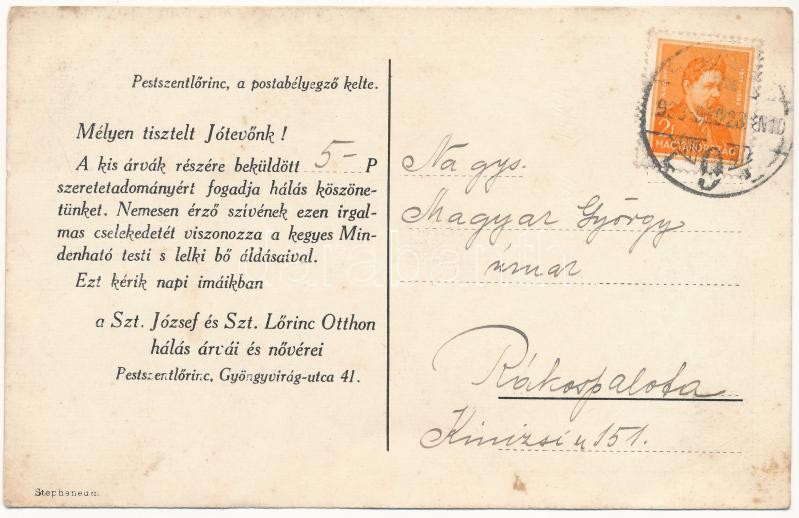 Pestszentlőrinc, a postabélyegző kelte.
Mélyen tisztelt Jótevőnk !
A kis árvák részére beküldött 5- P
szeretetadományért fogadja hálás köszöne-
tünket. Nemesen érző szívének ezen irgal-
mas cselekedetét viszonozza a kegyes Min-
denható testi s lelki bő áldásaival.
Ezt kérik napi imáikban
a Szt. József és Szt. Lőrinc Otthon
hálás árvái és nővérei
Pestszentlőrinc, Gyöngyvirág-utca 41.
Stephaneum.
MAGYARORSZÁG
Nagys.
Magyar György
úrnak
Rákospalota
Kinizsi u 151.